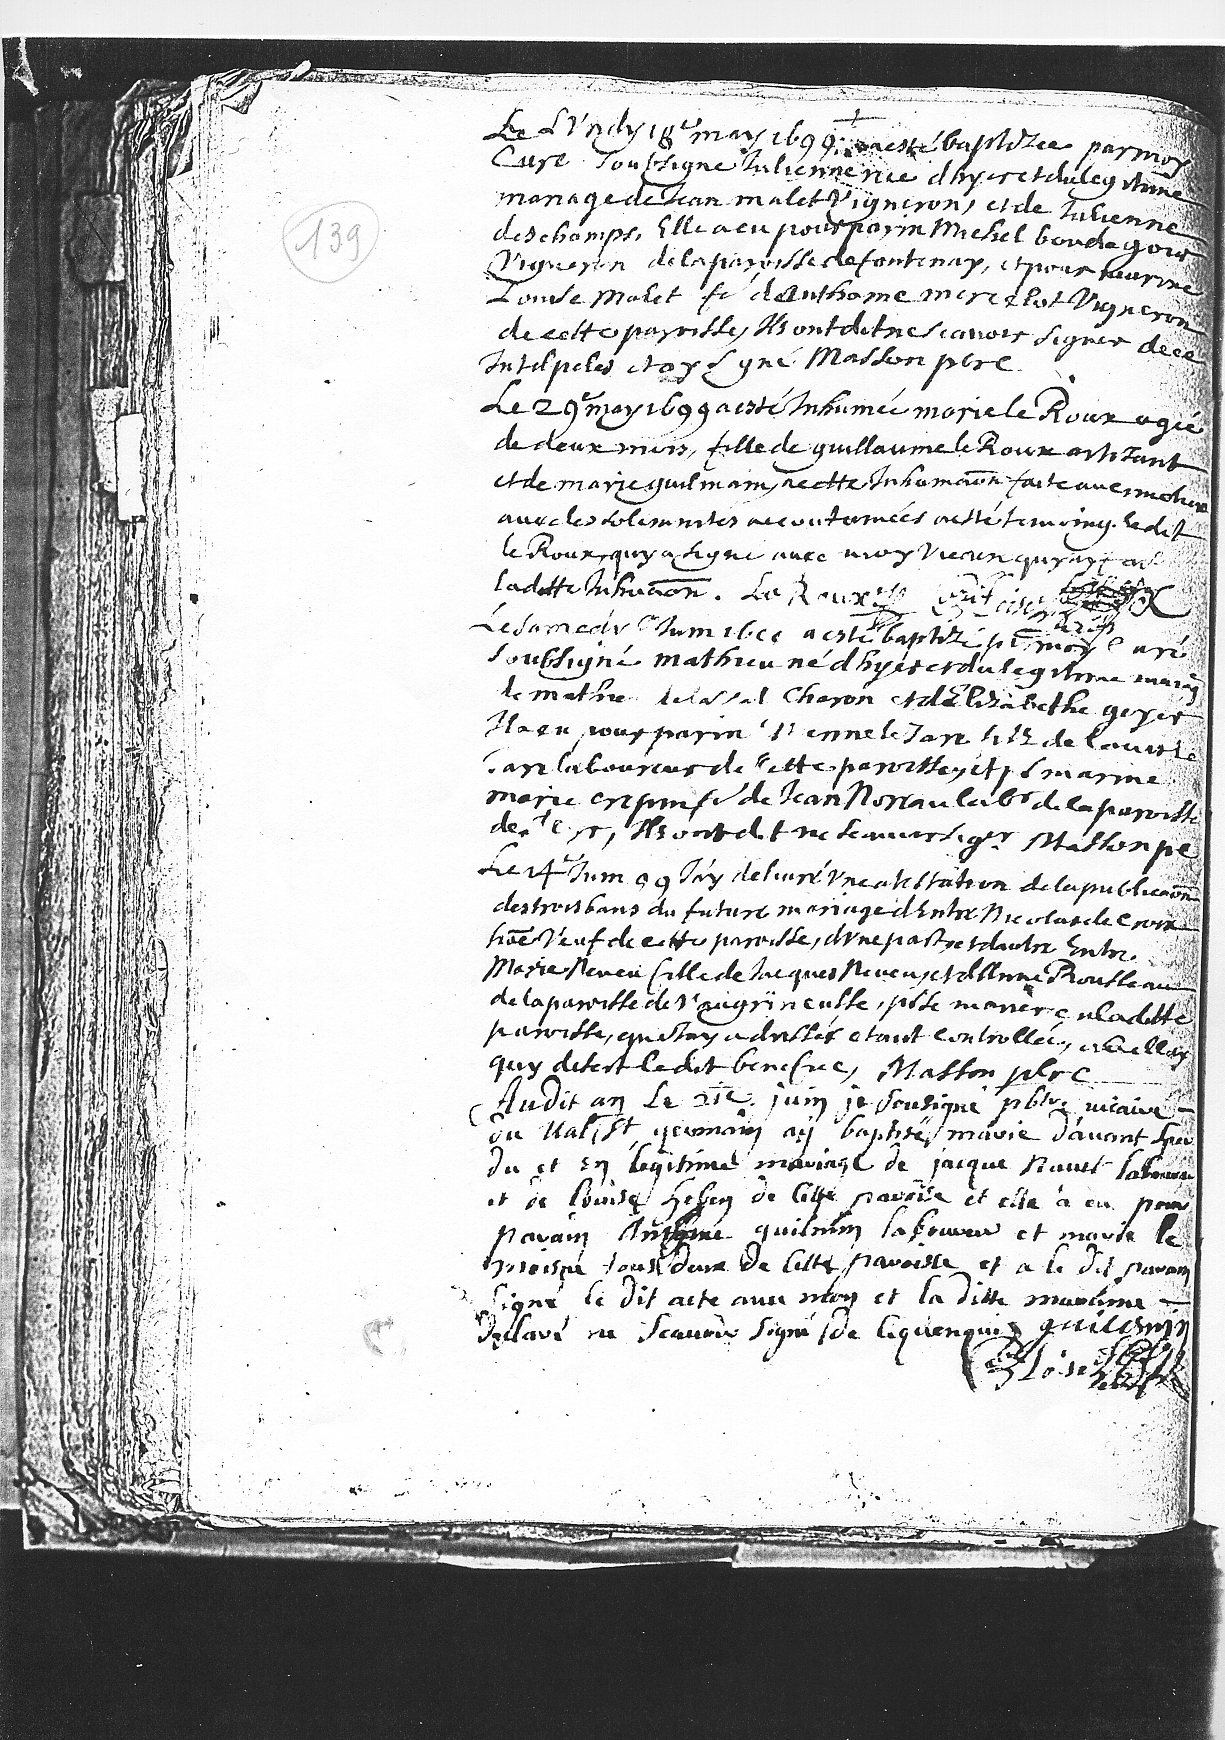 139
Le Lundy 18e may 1699 a esté baptizee par moy
Curé Soubsigné Julienne née d'hyer et du legitime
mariage de Jean malet Vigneron, et de Julienne
deschamps, Elle a eu pour parin Michel
Vigneron de la paroisse de fontenay, et pour marine
Louise Malet fe d'Anthoine mercelot Vigneron
de cette paroisse, Ils ont dit ne scavoir signer de ce
Interpelés et ay signé Masson pbre
Le 29e may 1699 a esté Inhumée marie le Roux agée
de deux mois, fille de guillaume le Roux artizant
et de marie guilmain, a cette Inhumaon faite
avec les solemnites accoutumées a esté temoing ledit
le Roux, quy a signé avec moy Vicaire quy ay fait
laditte Inhumaon. Le Roux
Le Samedy Juin a esté baptizé par moy Curé
soubsigné mathieu né d'hyer et du legitime mariage
de mathieu Charon et d'Elizabethe goyer
Il a eu pour parin Etienne le Jare fils de Louis le
Jare laboureur de cette paroisse, et pr marine
marie crepin fe de Jean Noreau labr de la paroisse
de Ils ont dit ne scavoir signer Masson pbre
Le 14e Juin 99 J'ay delivré Une attestation de la publicaon
des trois bans du future mariage d'Entre Nicolas de Croix
Veuf de cette paroisse, d'Une part, et d'autre Entre
Marie Neveu fille de Jacques Neveu, et d'Anne Rousseau
de la paroisse de Vaugrineusse,
paroisse, que J'ay adressée etant controllée, a
quy desert le dit benefice, Masson pbre
Audit an Le 21e juin je sousigné pbtre vicaire
du Val St germain ay baptisé marie
du et en legitime mariage de jacque Nauet laboureur
et de louise de cette paroisse et elle a eu pour
parain Anthoine guilmin laboureur et marie le
tous deux de cette paroisse et a le dit parain
signé le dit acte avec moy et la ditte maraine
declaré ne scavoir signé de ce quenquis guilemin